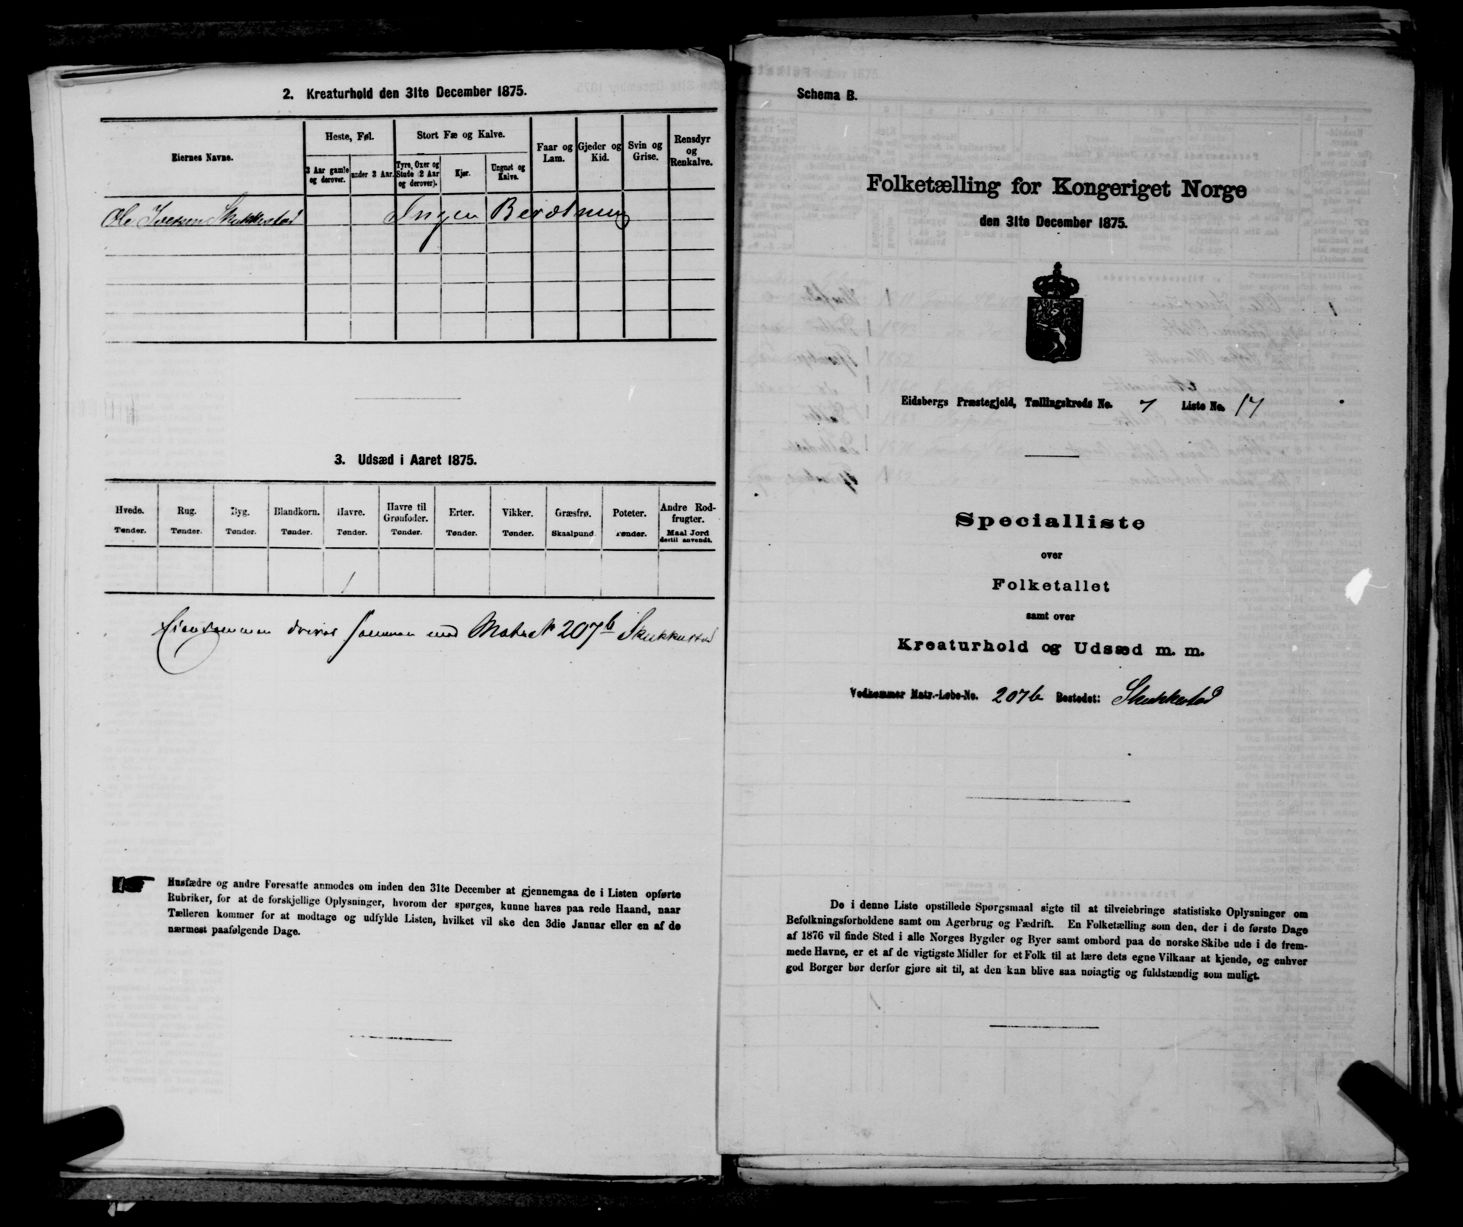 2. Kreaturhold den 31te December 1875.
Eiernes Navne.
Heste, Føl.
Stort Fæ og Kalve.
Faar og Lam.
Gjeder og Kid.
Svin og Grise.
Rensdyr og Renkalve.
3 Aar gamle og derover.
under 3 Aar.
Tyre, Oxer og Stude (2 Aar og derover).
Kjør.
Ungnøt og Kalve.
Ole Iversen Skukkestad
Ingen Besætning
3. Udsæd i Aaret 1875.
Hvede. Rug. Byg. Blandkorn. Havre. Havre til Grønfoder. Erter. Vikker. Græsfrø. Poteter. Andre Rodfrugter.
Tønder. Tønder. Tønder. Tønder. Tønder. Tønder. Tønder. Tønder. Skaalpund. Tønder. Maal Jord dertil anvendt.
1
Eiendommen drives sammen med Matr. N 207b Skukkestad
Husfædre og andre Foresatte anmodes om inden den 31te December at gjennemgaa de i Listen opførte
Rubriker, for at de forskjellige Oplysninger, hvorom der spørges, kunne haves paa rede Haand, naar
Tælleren kommer for at modtage og udfylde Listen, hvilket vil ske den 3die Januar eller en af de
nærmest paafølgende Dage.
Schema B.
Folketælling for Kongeriget Norge
den 31te December 1875.
Eidsbergs Præstegjeld, Tællingskreds No. 7 Liste No. 17
Specialliste
over
Folketallet
samt over
Kreaturhold og Udsæd m. m.
Vedkommer Matr.-Løbe-No. 207b Bostedet: Skukkestad
De i denne Liste opstillede Spørgsmaal sigte til at tilveiebringe statistiske Oplysninger om
Befolkningsforholdene samt om Agerbrug og Fædrift. En Folketælling som den, der i de første Dage
af 1876 vil finde Sted i alle Norges Bygder og Byer samt ombord paa de norske Skibe ude i de frem-
mede Havne, er et af de vigtigste Midler for et Folk til at lære dets egne Vilkaar at kjende, og enhver
god Borger bør derfor gjøre sit til, at den kan blive saa nøiagtig og fuldstændig som muligt.